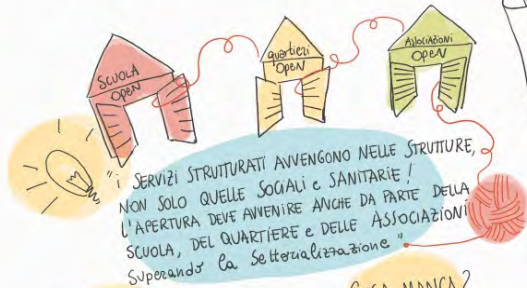 SCUOLA
OPEN
quartieri
OPEN
ASSOCIAZIONI
OPEN
"i SERVIZI STRUTTURATI AVVENGONO NELLE STRUTTURE,
NON SOLO QUELLE SOCIALI e SANITARIE!
L'APERTURA DEVE AVVENIRE ANCHE DA PARTE DELLA
SCUOLA, DEL QUARTIERE e DELLE ASSOCIAZIONI
Superando la Settorializzazione"
COSA MANCA?